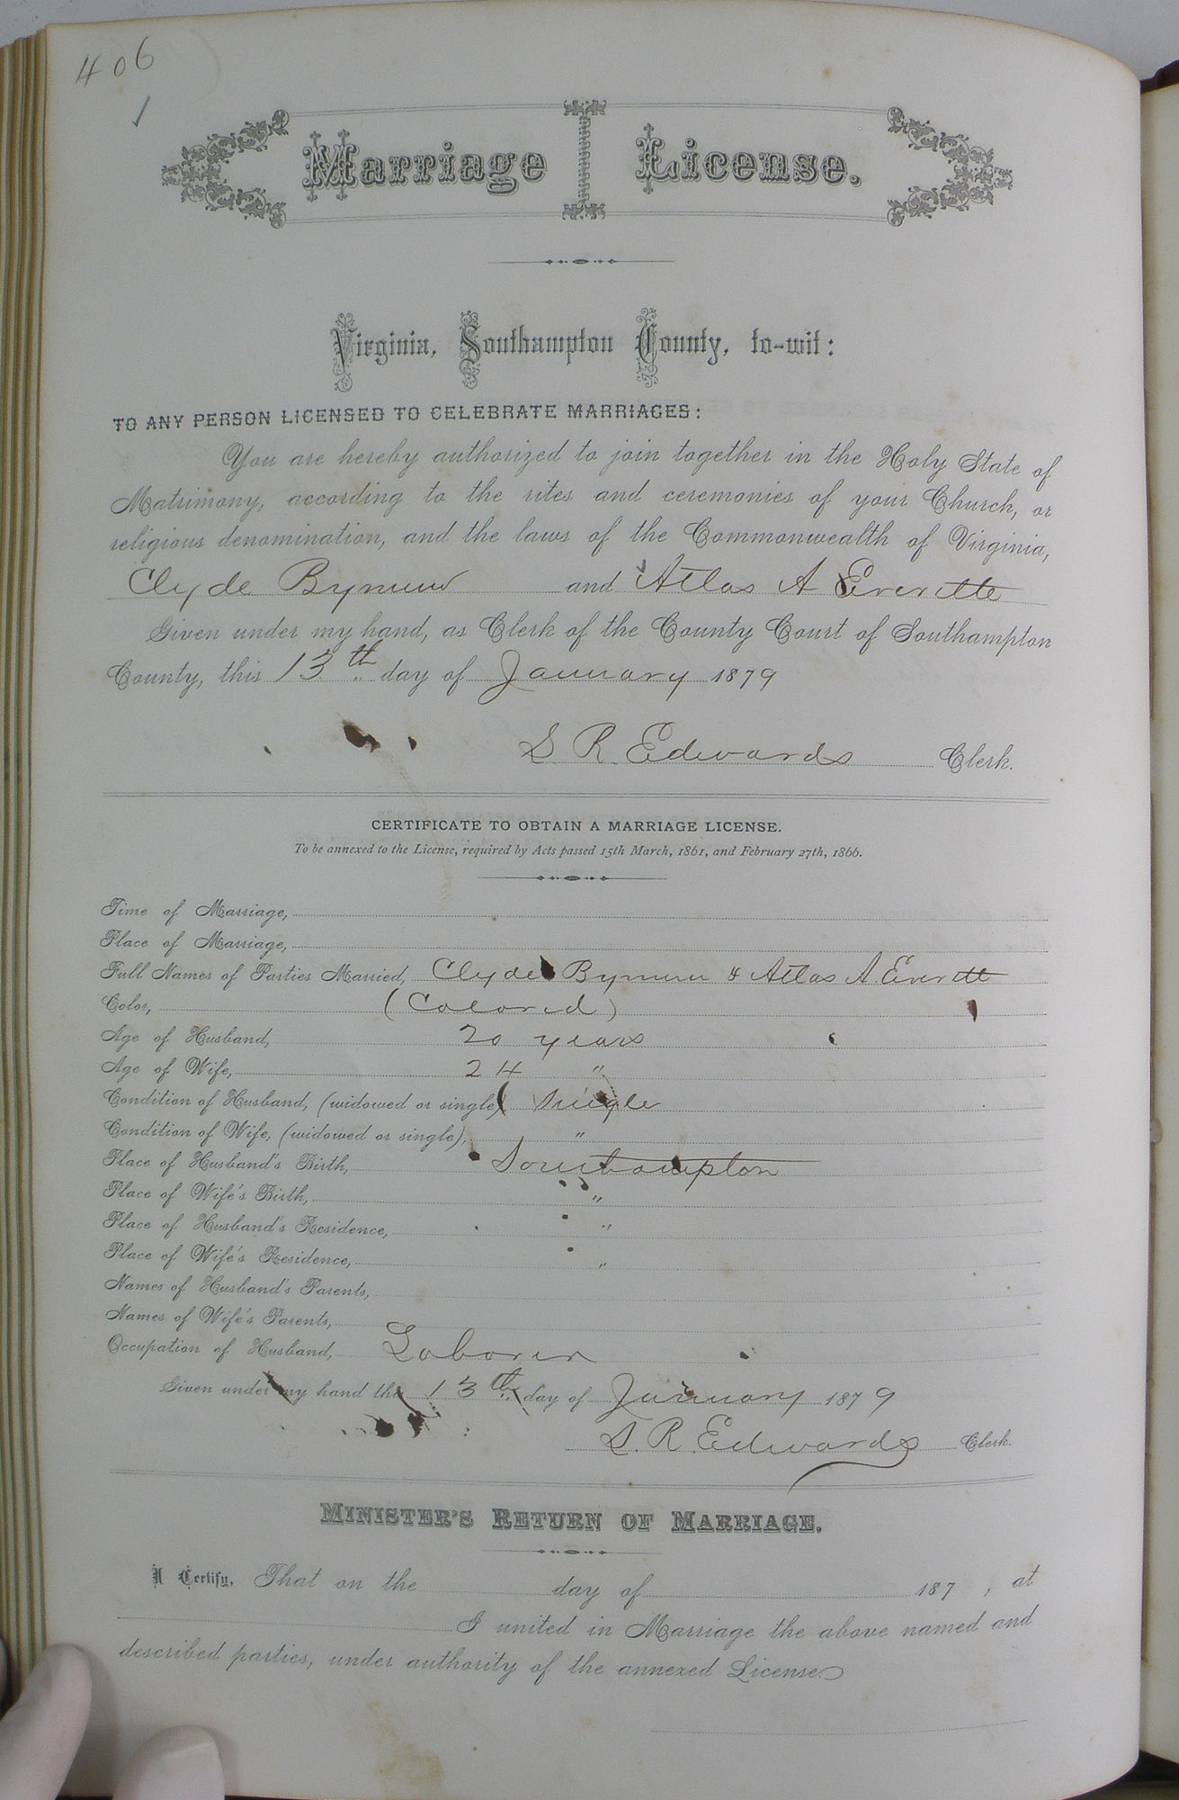 406
Marriage License.
Virginia, Southampton County, to-wit:
TO ANY PERSON LICENSED TO CELEBRATE MARRIAGES:
You are hereby authorized to join together in the Holy State of
Matrimony, according to the rites and ceremonies of your Church, or
religious denomination, and the laws of the Commonwealth of Virginia,
Clyde Bynum and Atlas A Everette
Given under my hand, as Clerk of the County Court of Southampton
County, this 13th day of January 1879
S R Edwards Clerk.
CERTIFICATE TO OBTAIN A MARRIAGE LICENSE.
To be annexed to the License, required by Acts passed 15th March, 1861, and February 27th, 1866.
Time of Marriage,
Place of Marriage,
Full Names of Parties Married, Clyde Bynum & Atlas A. Everett
Color, (Colored)
Age of Husband, 20 years
Age of Wife, 24 "
Condition of Husband, (widowed or single) Single
Condition of Wife, (widowed or single), "
Place of Husband's Birth, Southampton
Place of Wife's Birth, "
Place of Husband's Residence, "
Place of Wife's Residence, "
Names of Husband's Parents,
Names of Wife's Parents,
Occupation of Husband, Laborer
Given under my hand the 13th day of January 1879
S. R. Edwards Clerk.
MINISTER'S RETURN OF MARRIAGE.
I Certify, That on the day of 187 , at
I united in Marriage the above named and
described parties, under authority of the annexed License.